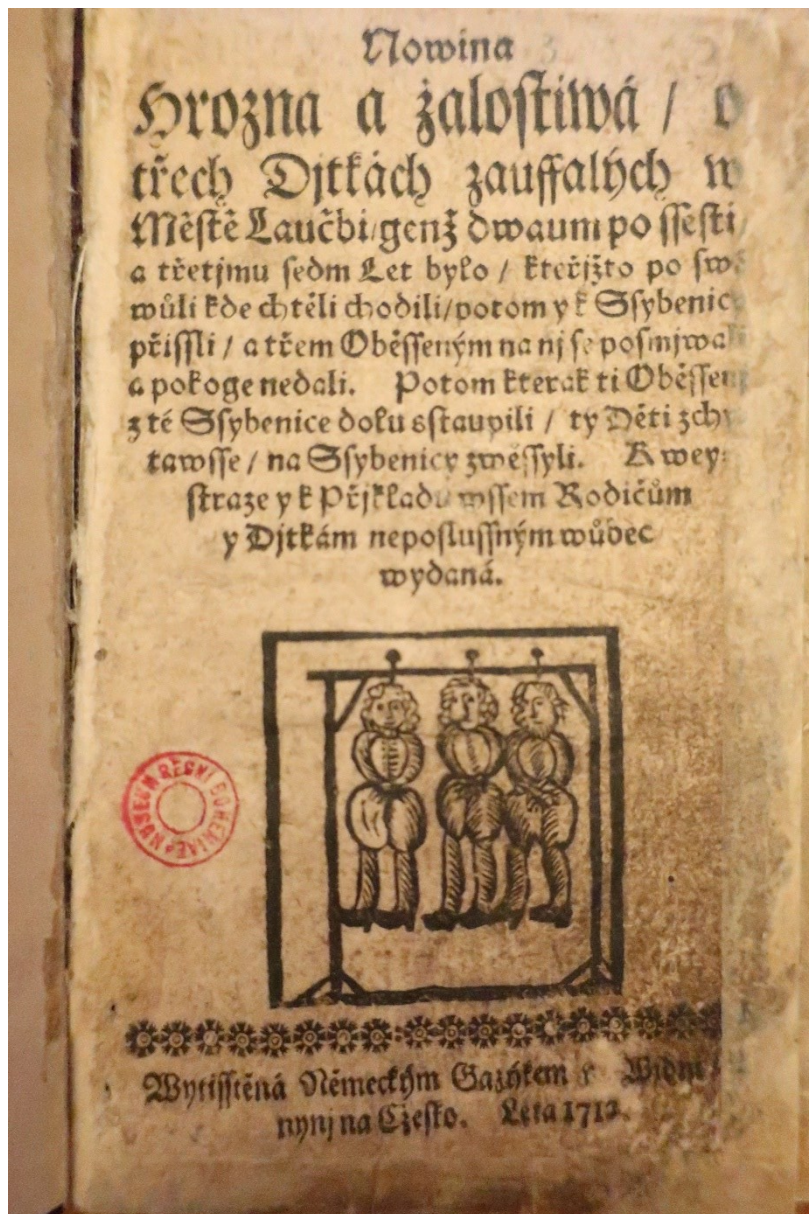 Nowina
Hrozna a żalostiwá / o
třech Djtkách zauffalých w
Městě Laučbi / genž dwaum po ssesti
a třetjmu sedm Let bylo / kteřjžto po
wůli kde chtěli chodili / potom y k
přissli / a třem Oběsseným na nj se
a pokoge nedali. Potom kterak ti
z té Ssybenice dolu sstaupili / ty Děti
tawsse / na Ssybenicy zwěssyli. K wey-
straze y k Přjkladu wssem Rodičům
y Djtkám neposlussným wůbec
wydaná.
MUSEUM REGNI BOHEMIAE
Wytisstěná Německým Gazykem
nynj na Cžesko. Léta